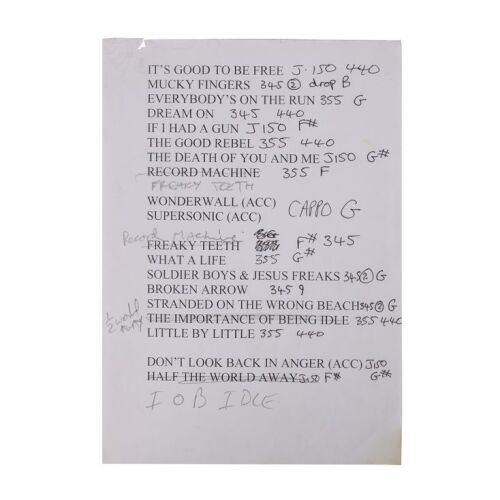 IT'S GOOD TO BE FREE J.150 440
MUCKY FINGERS 345 ② drop B
EVERYBODY'S ON THE RUN 355 G
DREAM ON 345 440
IF I HAD A GUN J150 F#
THE GOOD REBEL 355 440
THE DEATH OF YOU AND ME J150 G#
RECORD MACHINE 355 F
FREAKY TEETH
WONDERWALL (ACC)
SUPERSONIC (ACC) CAPPO G
Record Machine
FREAKY TEETH F# 345
WHAT A LIFE 355 G#
SOLDIER BOYS & JESUS FREAKS 345② G
BROKEN ARROW 345 9
STRANDED ON THE WRONG BEACH 345② G
½ world away
THE IMPORTANCE OF BEING IDLE 355 440
LITTLE BY LITTLE 355 440
DON'T LOOK BACK IN ANGER (ACC) J150
HALF THE WORLD AWAY J150 F# G#
I O B IDLE